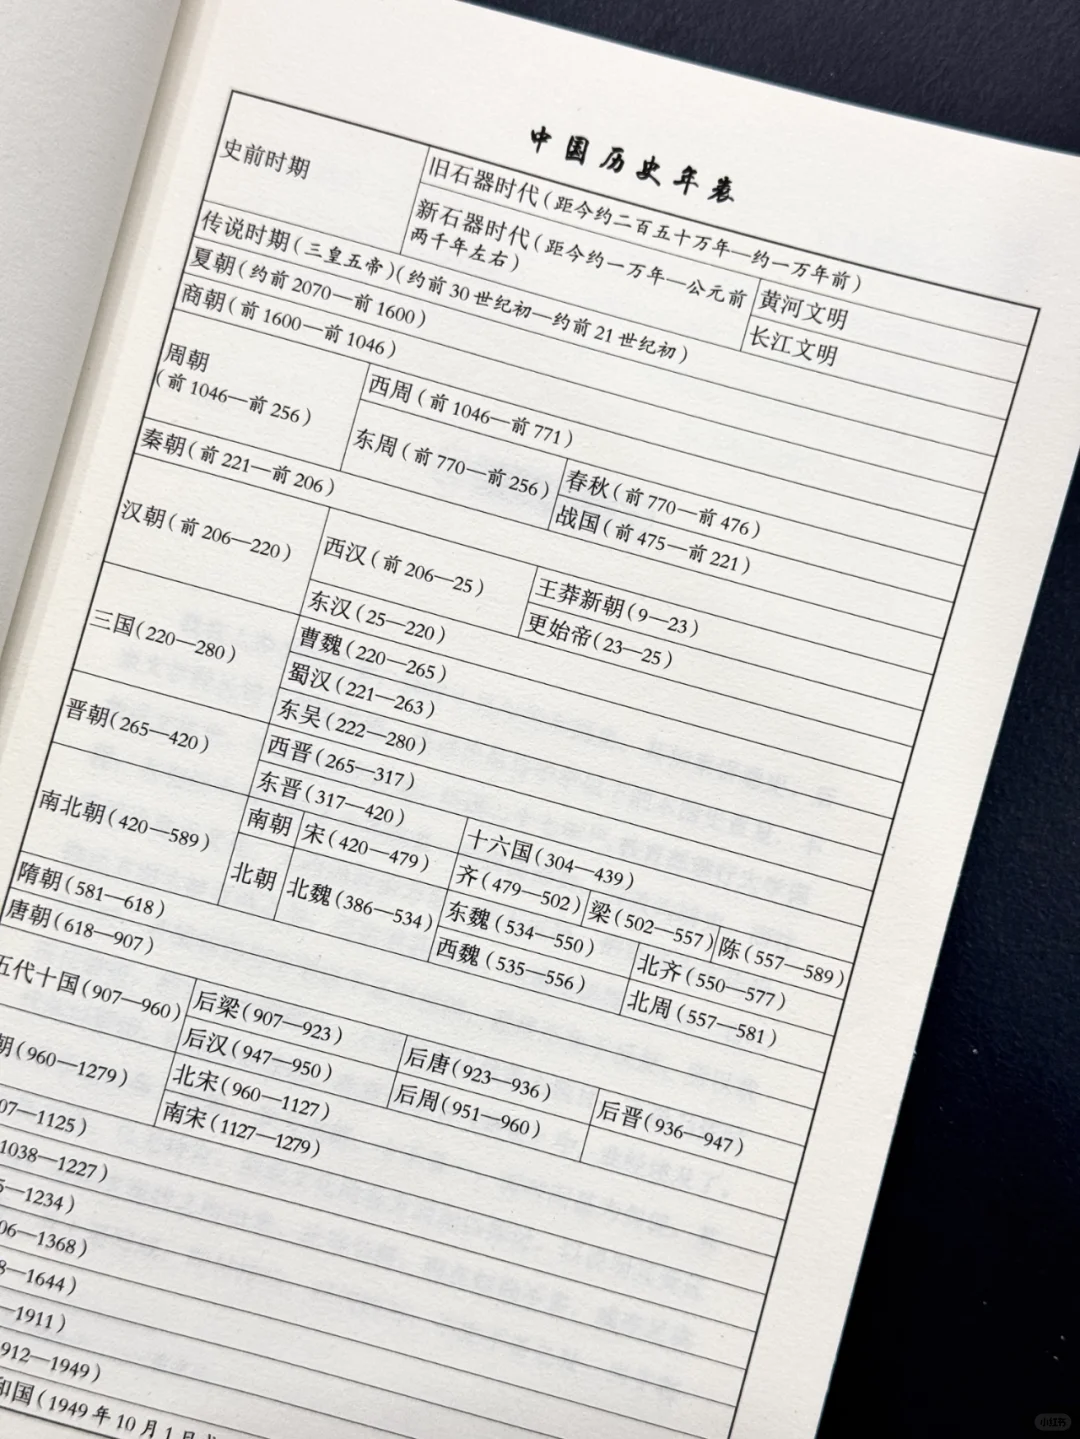 中国历史年表
史前时期
旧石器时代(距今约二百五十万年—约一万年前)
新石器时代(距今约一万年—公元前
两千年左右)
黄河文明
长江文明
传说时期(三皇五帝)(约前30世纪初—约前21世纪初)
夏朝(约前2070—前1600)
商朝(前1600—前1046)
周朝
(前1046—前256)
西周(前1046—前771)
东周(前770—前256)
春秋(前770—前476)
战国(前475—前221)
秦朝(前221—前206)
汉朝(前206—220)
西汉(前206—25)
王莽新朝(9—23)
更始帝(23—25)
东汉(25—220)
三国(220—280)
曹魏(220—265)
蜀汉(221—263)
东吴(222—280)
晋朝(265—420)
西晋(265—317)
东晋(317—420)
十六国(304—439)
南北朝(420—589)
南朝
宋(420—479)
齐(479—502)
梁(502—557)
陈(557—589)
北朝
北魏(386—534)
东魏(534—550)
北齐(550—577)
西魏(535—556)
北周(557—581)
隋朝(581—618)
唐朝(618—907)
五代十国(907—960)
后梁(907—923)
后唐(923—936)
后晋(936—947)
后汉(947—950)
后周(951—960)
朝(960—1279)
北宋(960—1127)
南宋(1127—1279)
07—1125)
1038—1227)
5—1234)
06—1368)
8—1644)
—1911)
912—1949)
和国(1949年10月1日
小红书